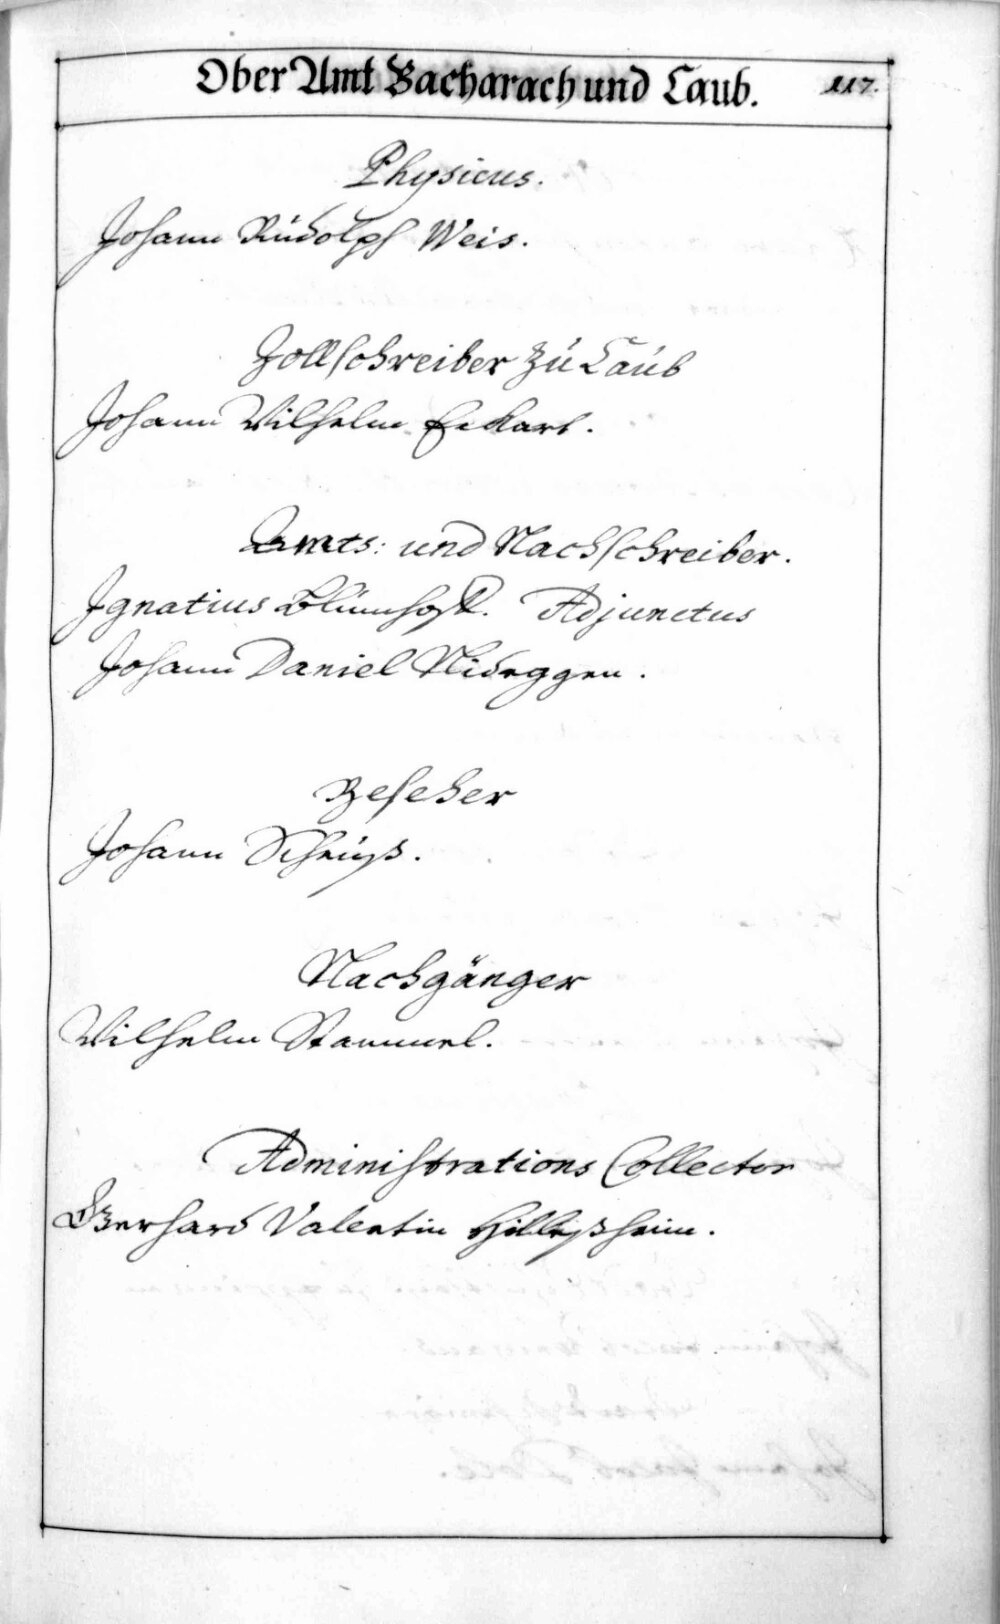 Ober Amt Bacharach und Caub. 117.
Physicus.
Johann Rudolph Weis.
Zollschreiber zu Caub
Johann Wilhelm Eckart.
Amts: und Nachschreiber.
Ignatius Adjunctus
Johann Daniel Nideggen.
Beseher
Johann
Nachgänger
Wilhelm Stammel.
Administrations Collector
Gerhard Valentin Hilleßheim.